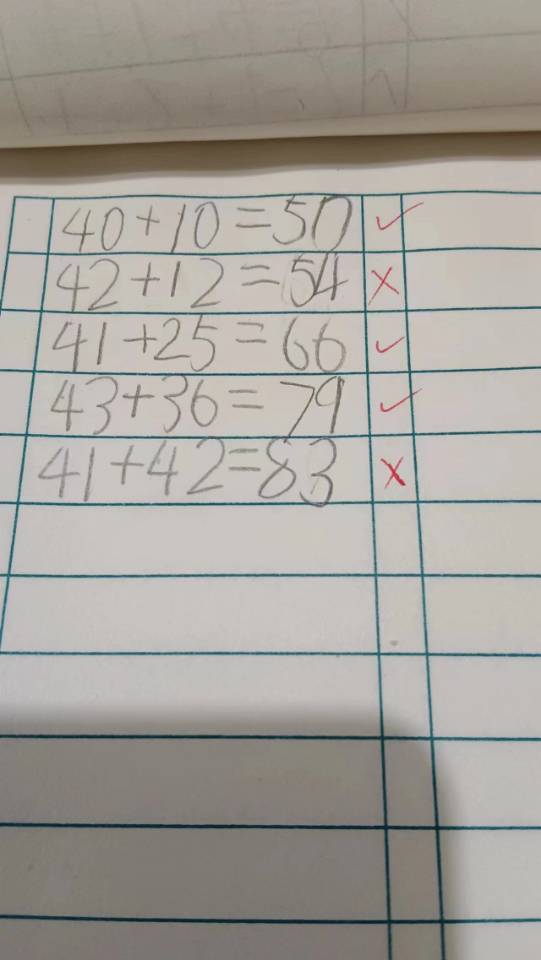 40+10=50 ✓
42+12=54 ✗
41+25=66 ✓
43+36=79 ✓
41+42=83 ✗